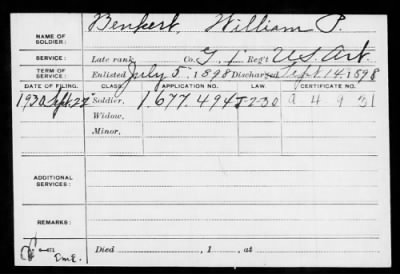 NAME OF SOLDIER: Benkert, William P.
SERVICE: Late rank, Co. G, 1 Reg't U.S. Art.
TERM OF SERVICE: Enlisted July 5, 1898 Discharged Sept. 14, 1898
DATE OF FILING. CLASS. APPLICATION NO. LAW. CERTIFICATE NO.
1930 Sept 22 Soldier, 1.677.494 J-2-30 A 4 9 31
Widow,
Minor,
ADDITIONAL SERVICES:
REMARKS:
EmE. Died , 1 , at